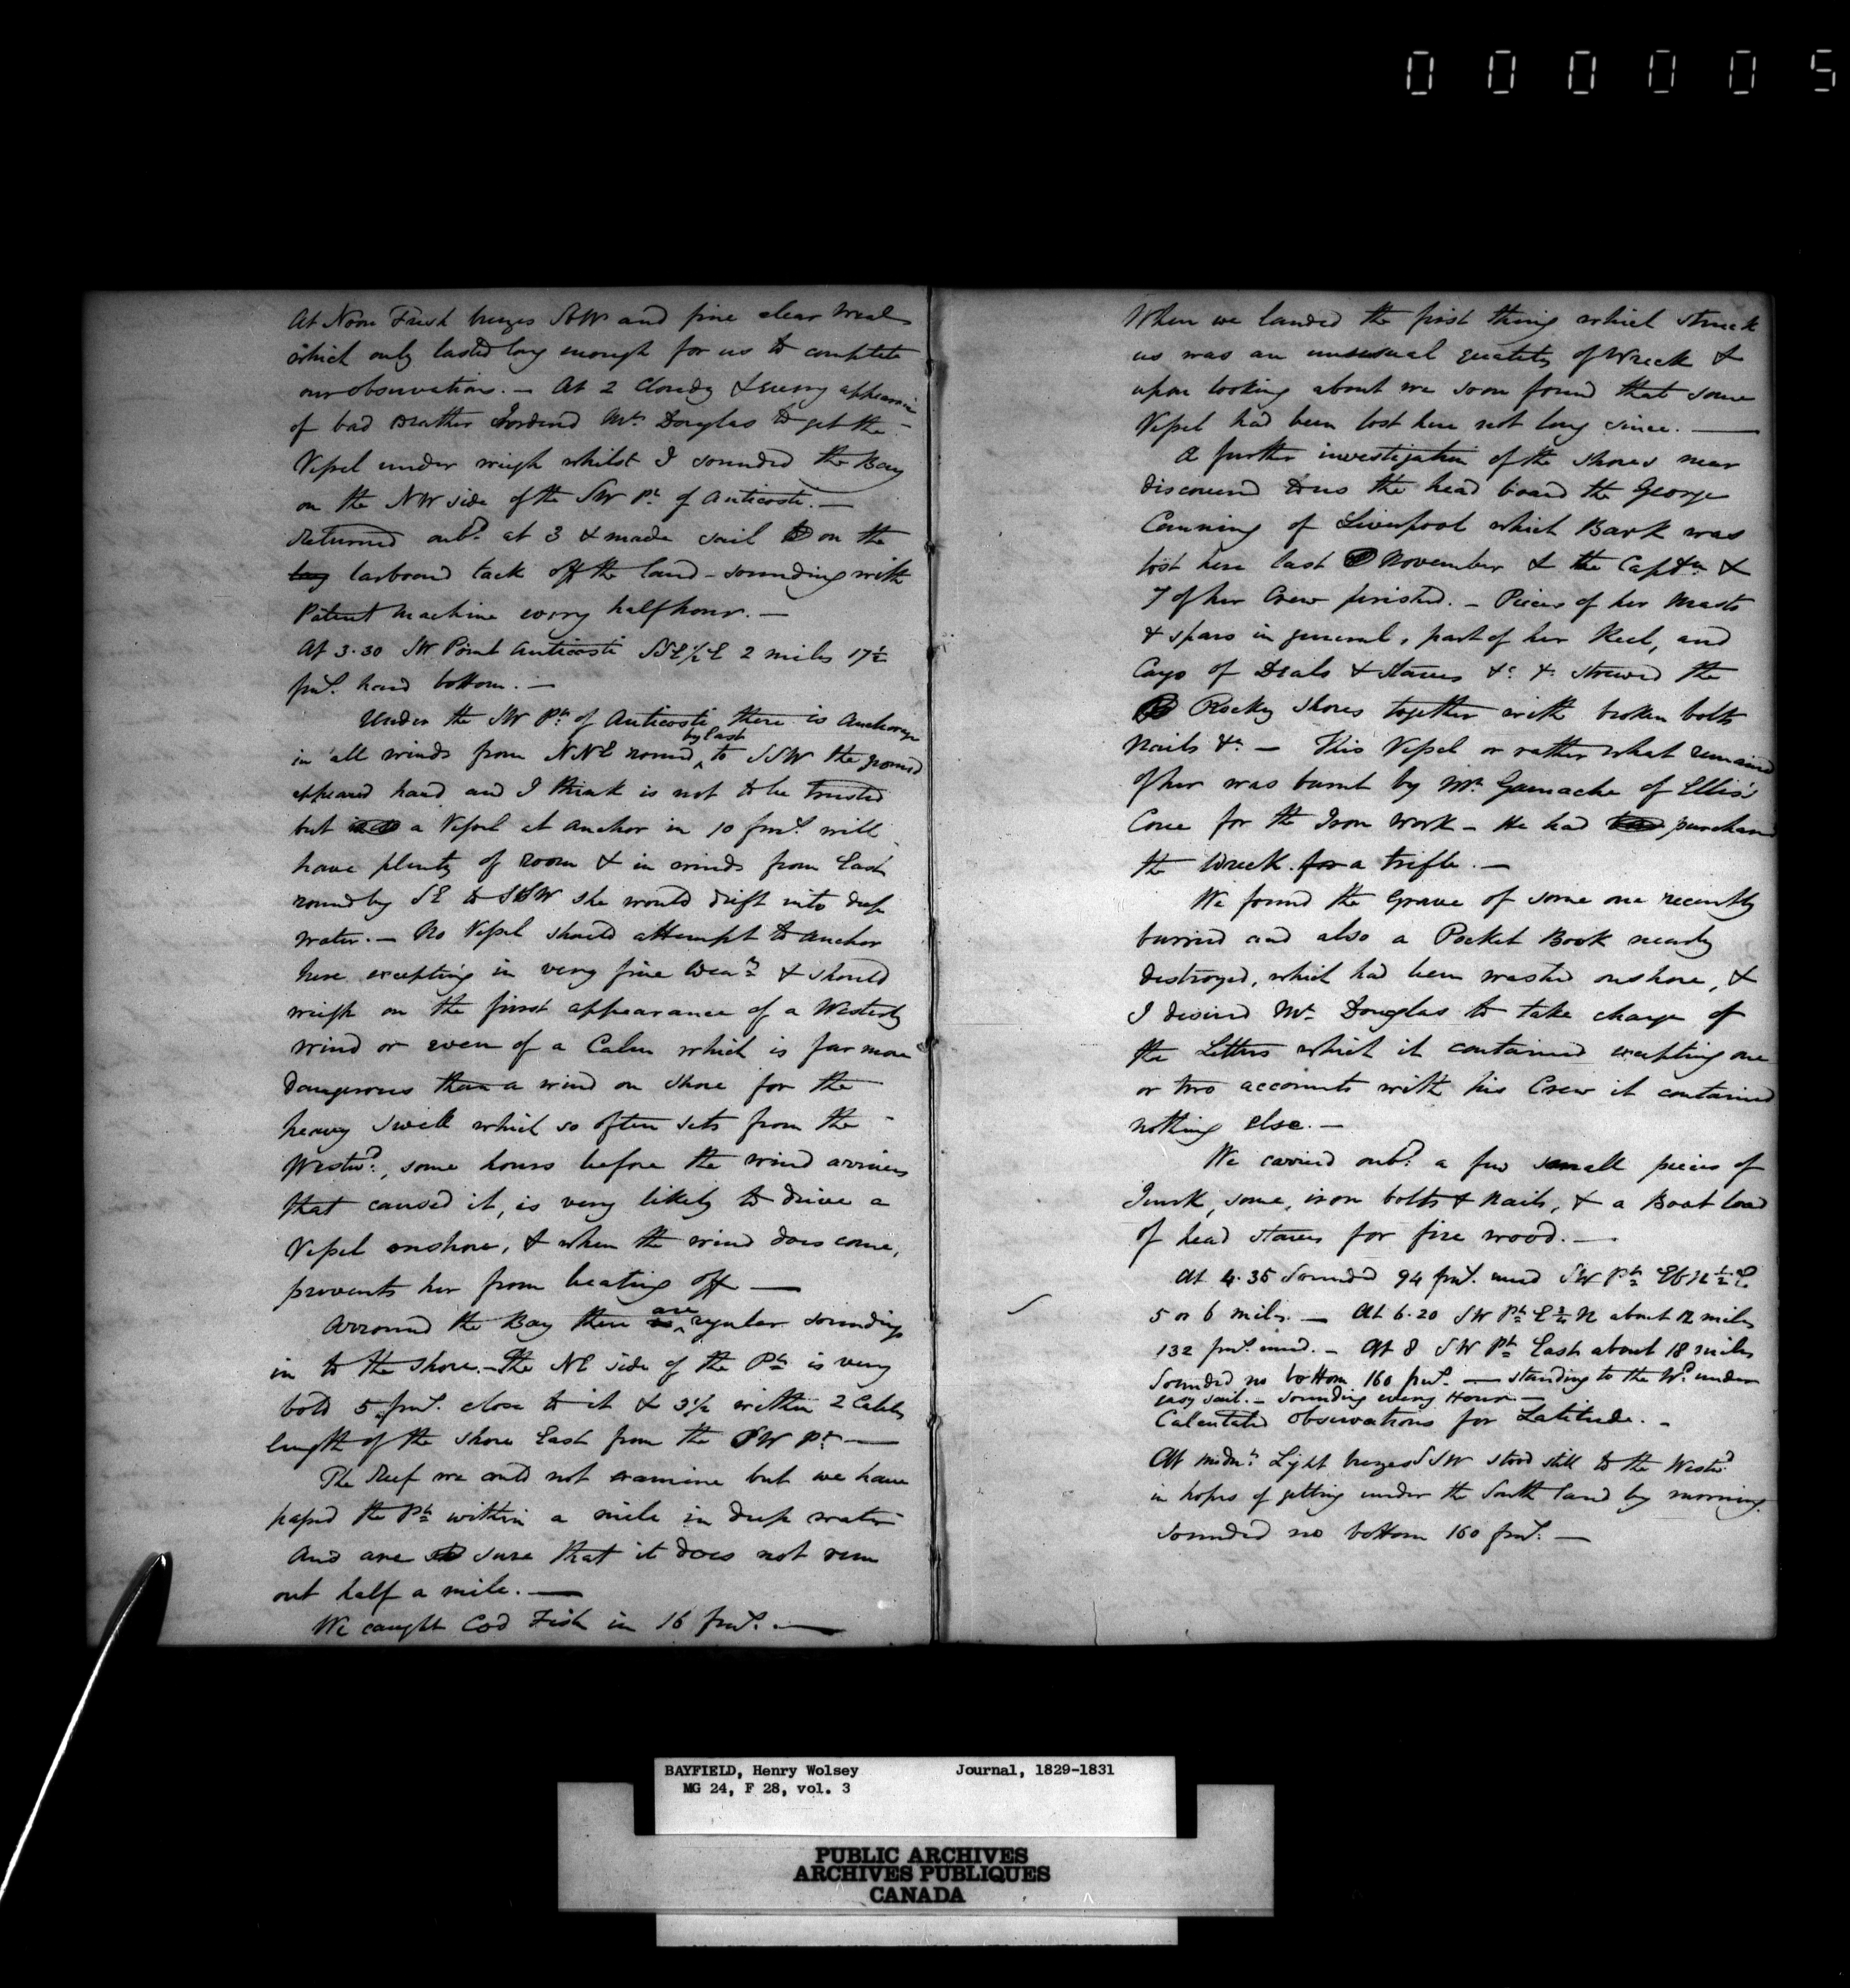 000005
At Noon Fresh breezes SbW and fine clear Wea
which only lasted long enough for us to complete
our observation. — At 2 Cloudy & every appearance
of bad Weather I ordered Mr. Douglas to get the
Vessel under weigh whilst I sounded the Bay
on the NW side of the SW Pt. of Anticosti. —
Returned onbd. at 3 & made sail on the
larboard tack off the land - sounding with
Patent Machine every half hour. —
At 3.30 SW Point Anticosti SSE½E 2 miles 17½
fms. hard bottom. —
Under the SW Pt. of Anticosti there is Anchorage
by East
in all winds from NNE round to SSW the ground
appeared hard and I think is not to be trusted
but a Vessel at Anchor in 10 fms. will
have plenty of room & in winds from East
round by SE to SSW she would drift into deep
water. — No Vessel should attempt to anchor
here excepting in very fine Wear. & should
weigh on the first appearance of a Westerly
Wind or even of a Calm which is far more
dangerous than a wind on shore for the
heavy swell which so often sets from the
Westwd., some hours before the wind arrives
that caused it, is very likely to drive a
Vessel onshore, & when the wind does come,
prevents her from beating off —
are
Arround the Bay there regular soundings
in to the shore. - The NE side of the Pt. is very
bold 5 fms. close to it & 3½ within 2 Cables
length of the shore East from the SW Pt. —
The Reef we could not examine but we have
passed the Pt. within a mile in deep water
And are sure that it does not run
out half a mile. —
We caught Cod Fish in 16 fms. —
When we landed the first thing which struck
us was an unusual quantity of Wreck &
upon looking about we soon found that some
Vessel had been lost here not long since. —
A further investigation of the shores near
discovered to us the head board the George
Canning of Liverpool which Bark was
lost here last November & the Captn. &
7 of her Crew perished. - Pieces of her Masts
& spars in general, part of her Keel, and
Cargo of Deals & Staves &c. &c. strewed the
Rocky shores together with broken bolts
Nails &c. — This Vessel or rather what remained
of her was burnt by Mr. Gamache of Ellis's
Cove for the Iron Work - He had purchased
the Wreck for a trifle. —
We found the Grave of some one recently
burried and also a Pocket Book nearly
destroyed, which had been washed onshore, &
I desired Mr. Douglas to take charge of
the Letters which it contained excepting one
or two accounts with his Crew it contained
nothing else. —
We carried onbd. a few small pieces of
Junk, some, iron bolts & Nails, & a Boat load
of head staves for fire wood. —
At 4.35 Sounded 94 fms. mud SW Pt. EbN½E
5 or 6 miles. — At 6.20 SW Pt. E¾N about 12 miles
132 fms. mud. - At 8 SW Pt. East about 18 miles
Sounded no bottom 160 fms. — standing to the Wd. under
easy sail. — Sounding every Hour —
Calculated Observations for Latitude. -
At midnt. Light breezes SSW stood still to the Westwd.
in hopes of getting under the South land by morning.
Sounded no bottom 160 fms. —
BAYFIELD, Henry Wolsey Journal, 1829-1831
MG 24, F 28, vol. 3
PUBLIC ARCHIVES
ARCHIVES PUBLIQUES
CANADA